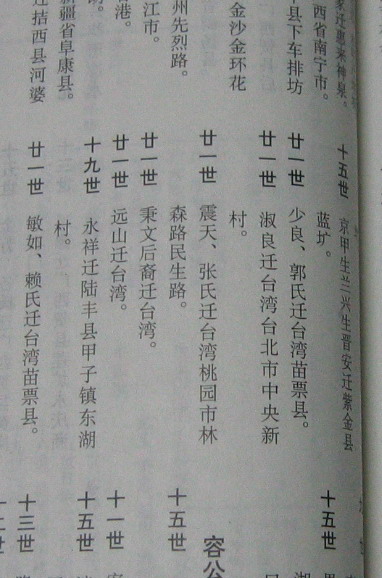 家迁惠来神泉。
西省南宁市。
丰县下车排坊
金沙金环花
州先烈路。
江市。
港。
新疆省阜康县。
迁揭西县河婆
十五世 京甲生兰兴生晋安迁紫金县
蓝圹。
廿一世 少良、郭氏迁台湾苗票县。
廿一世 淑良迁台湾台北市中央新
村。
廿一世 震天、张氏迁台湾桃园市林
森路民生路。
廿一世 秉文后裔迁台湾。
廿一世 远山迁台湾。
十九世 永祥迁陆丰县甲子镇东湖
村。
廿一世 敏如、赖氏迁台湾苗票县。
十五世
容公
十五世
十一世
十五世
十三世